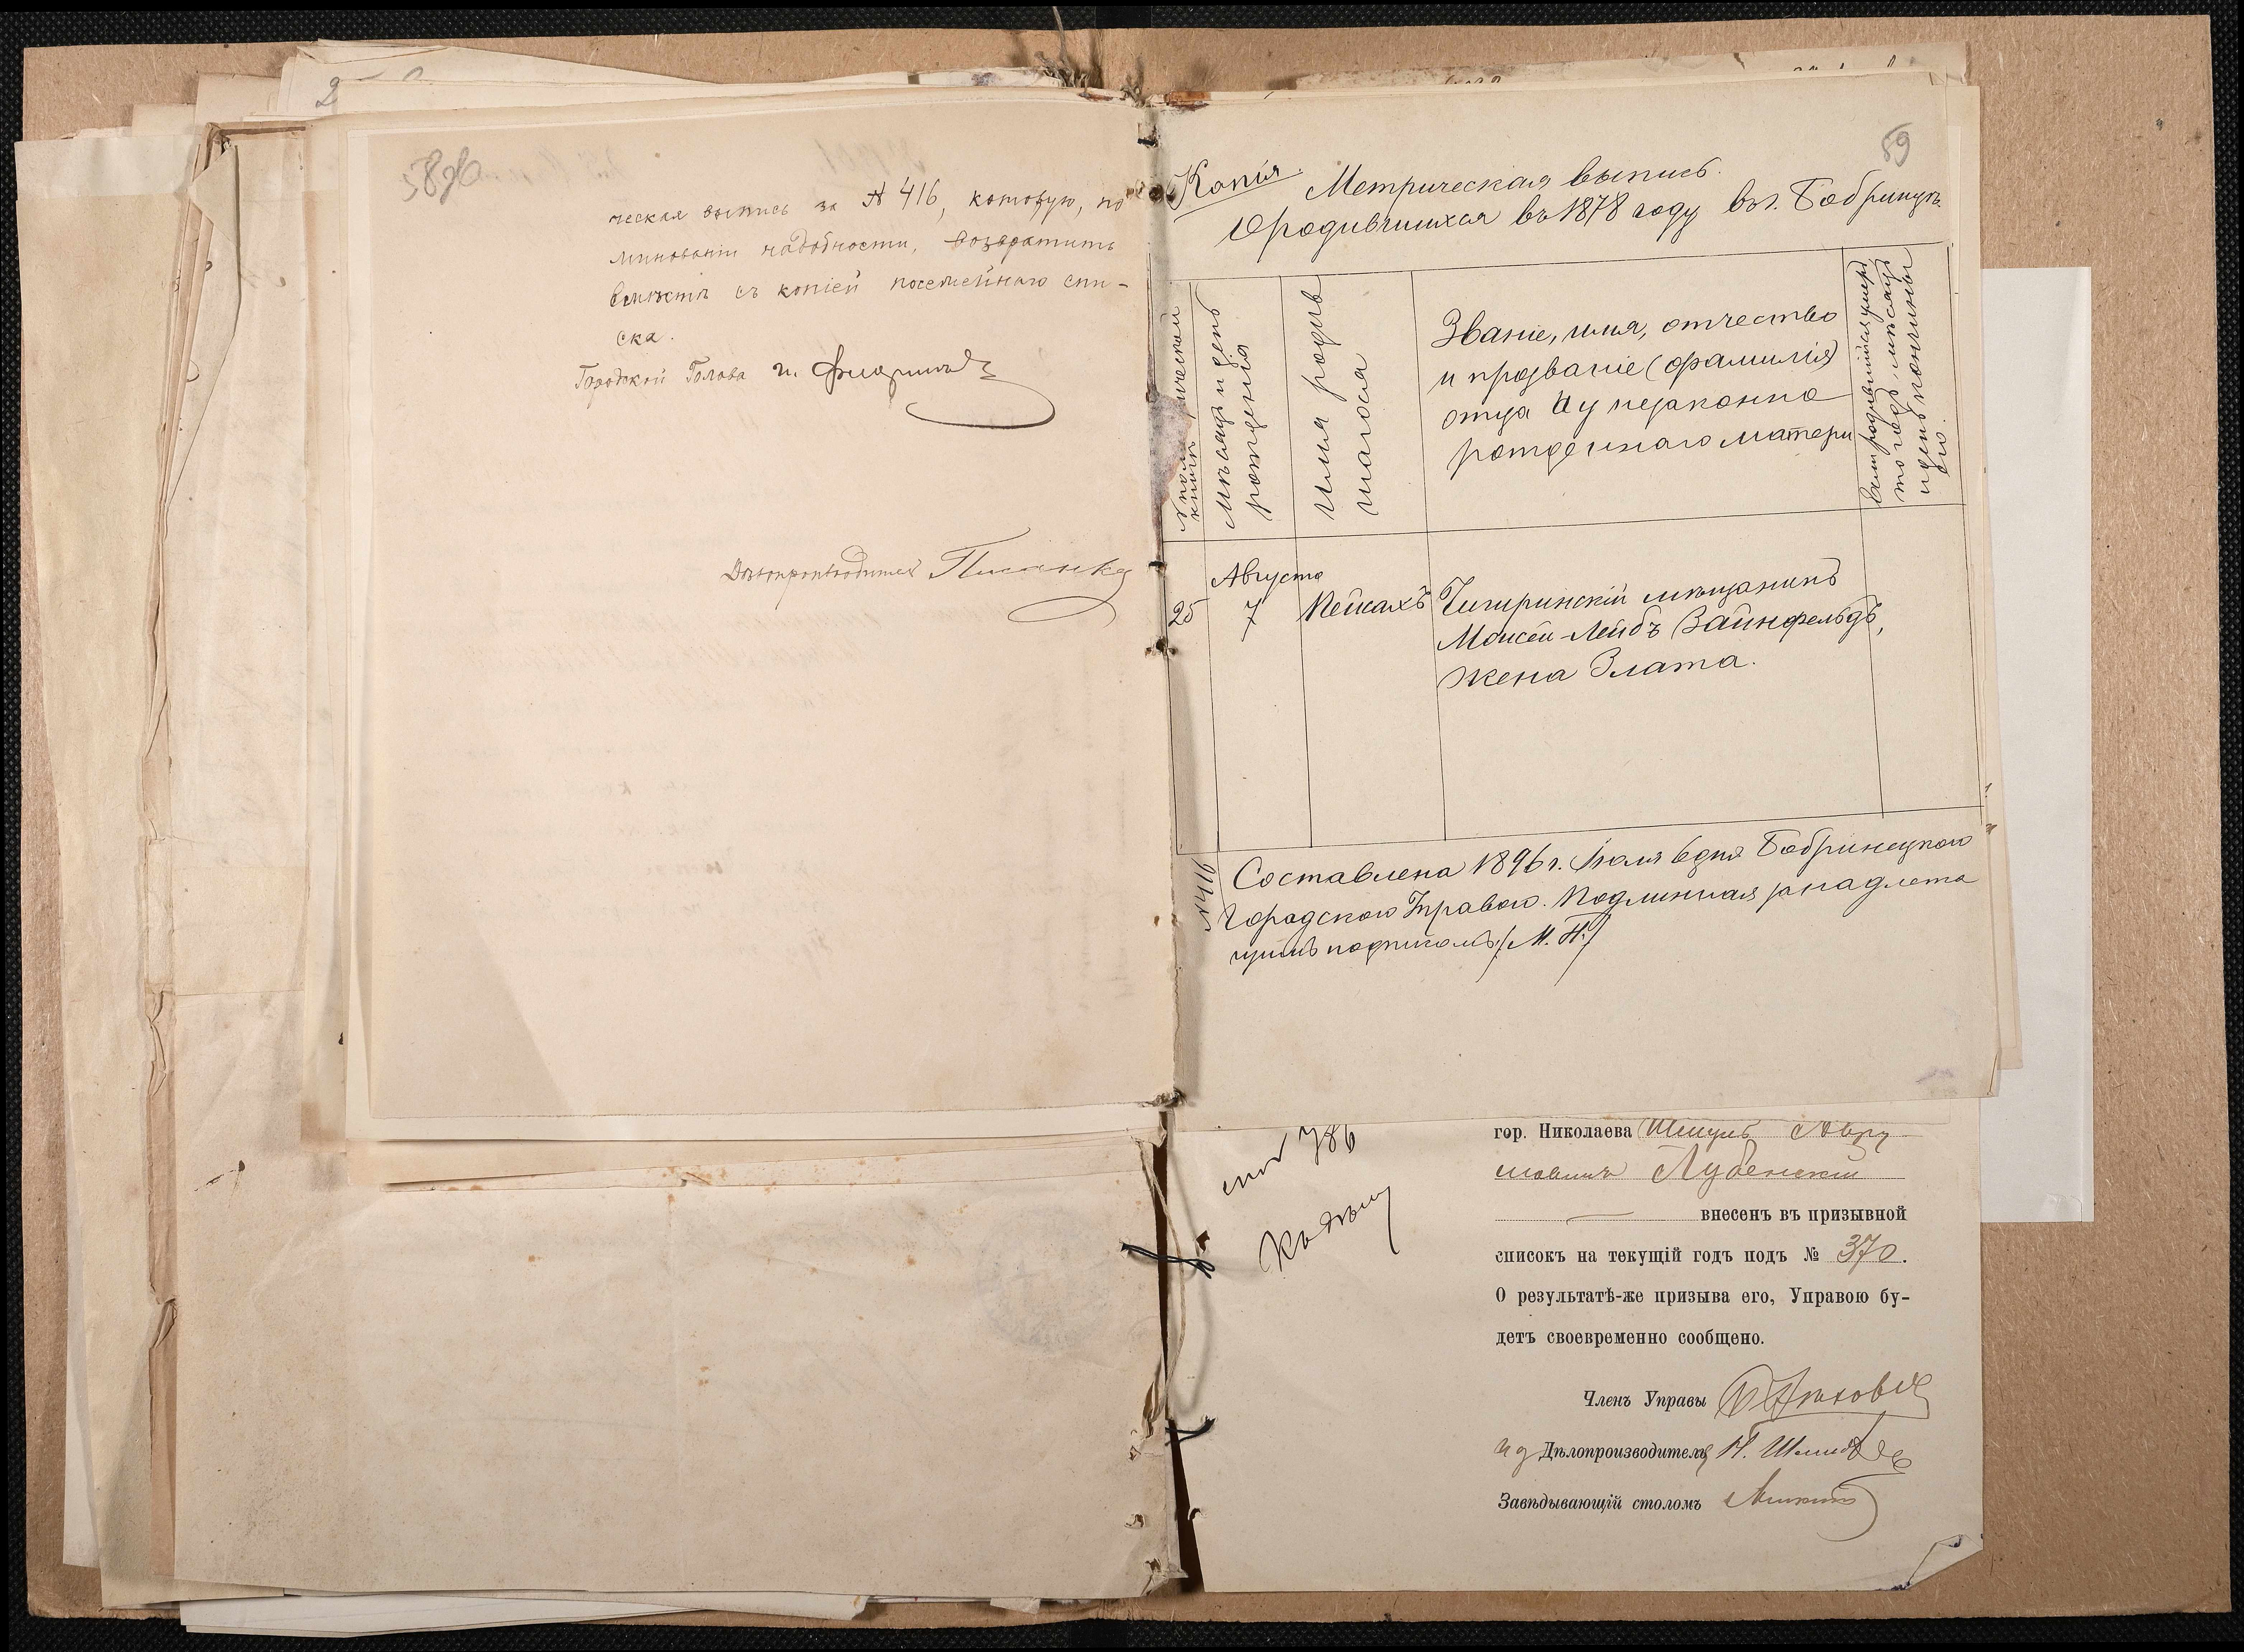 58 об
ческая выпись за № 416, которую, по
минованіи надобности, возвратить
вмѣстѣ съ копіей посемейнаго спи-
ска.
Городской Голова
Дѣлопроизводитель Писанко
59
Копія. Метрическая выпись.
О родившихся въ 1878 году въ г. Бобринцѣ.
Мѣсяцъ и день
рожденія
Имя родив
шагося
Званіе, имя, отчество
и прозваніе (фамилія)
отца и у незаконно
рожденнаго матери
если родившійся умеръ,
то годъ, мѣсяцъ
и день кончины
его.
Августа
25 7 Пейсахъ Чигиринскій мѣщанинъ
Моисей-Лейбъ Зайнфельдъ,
жена Злата.
№ 416
Составлена 1896 г. Іюля 6 дня Бобринецкою
Городскою Управою. Подлинная за надлежа
щимъ подписомъ. (М. П.)
786
гор. Николаева Шмуль Авру
мовичъ Лубенскій
внесенъ въ призывной
списокъ на текущій годъ подъ № 370.
О результатѣ-же призыва его, Управою бу-
детъ своевременно сообщено.
Членъ Управы
И д Дѣлопроизводителя
Завѣдывающій столомъ